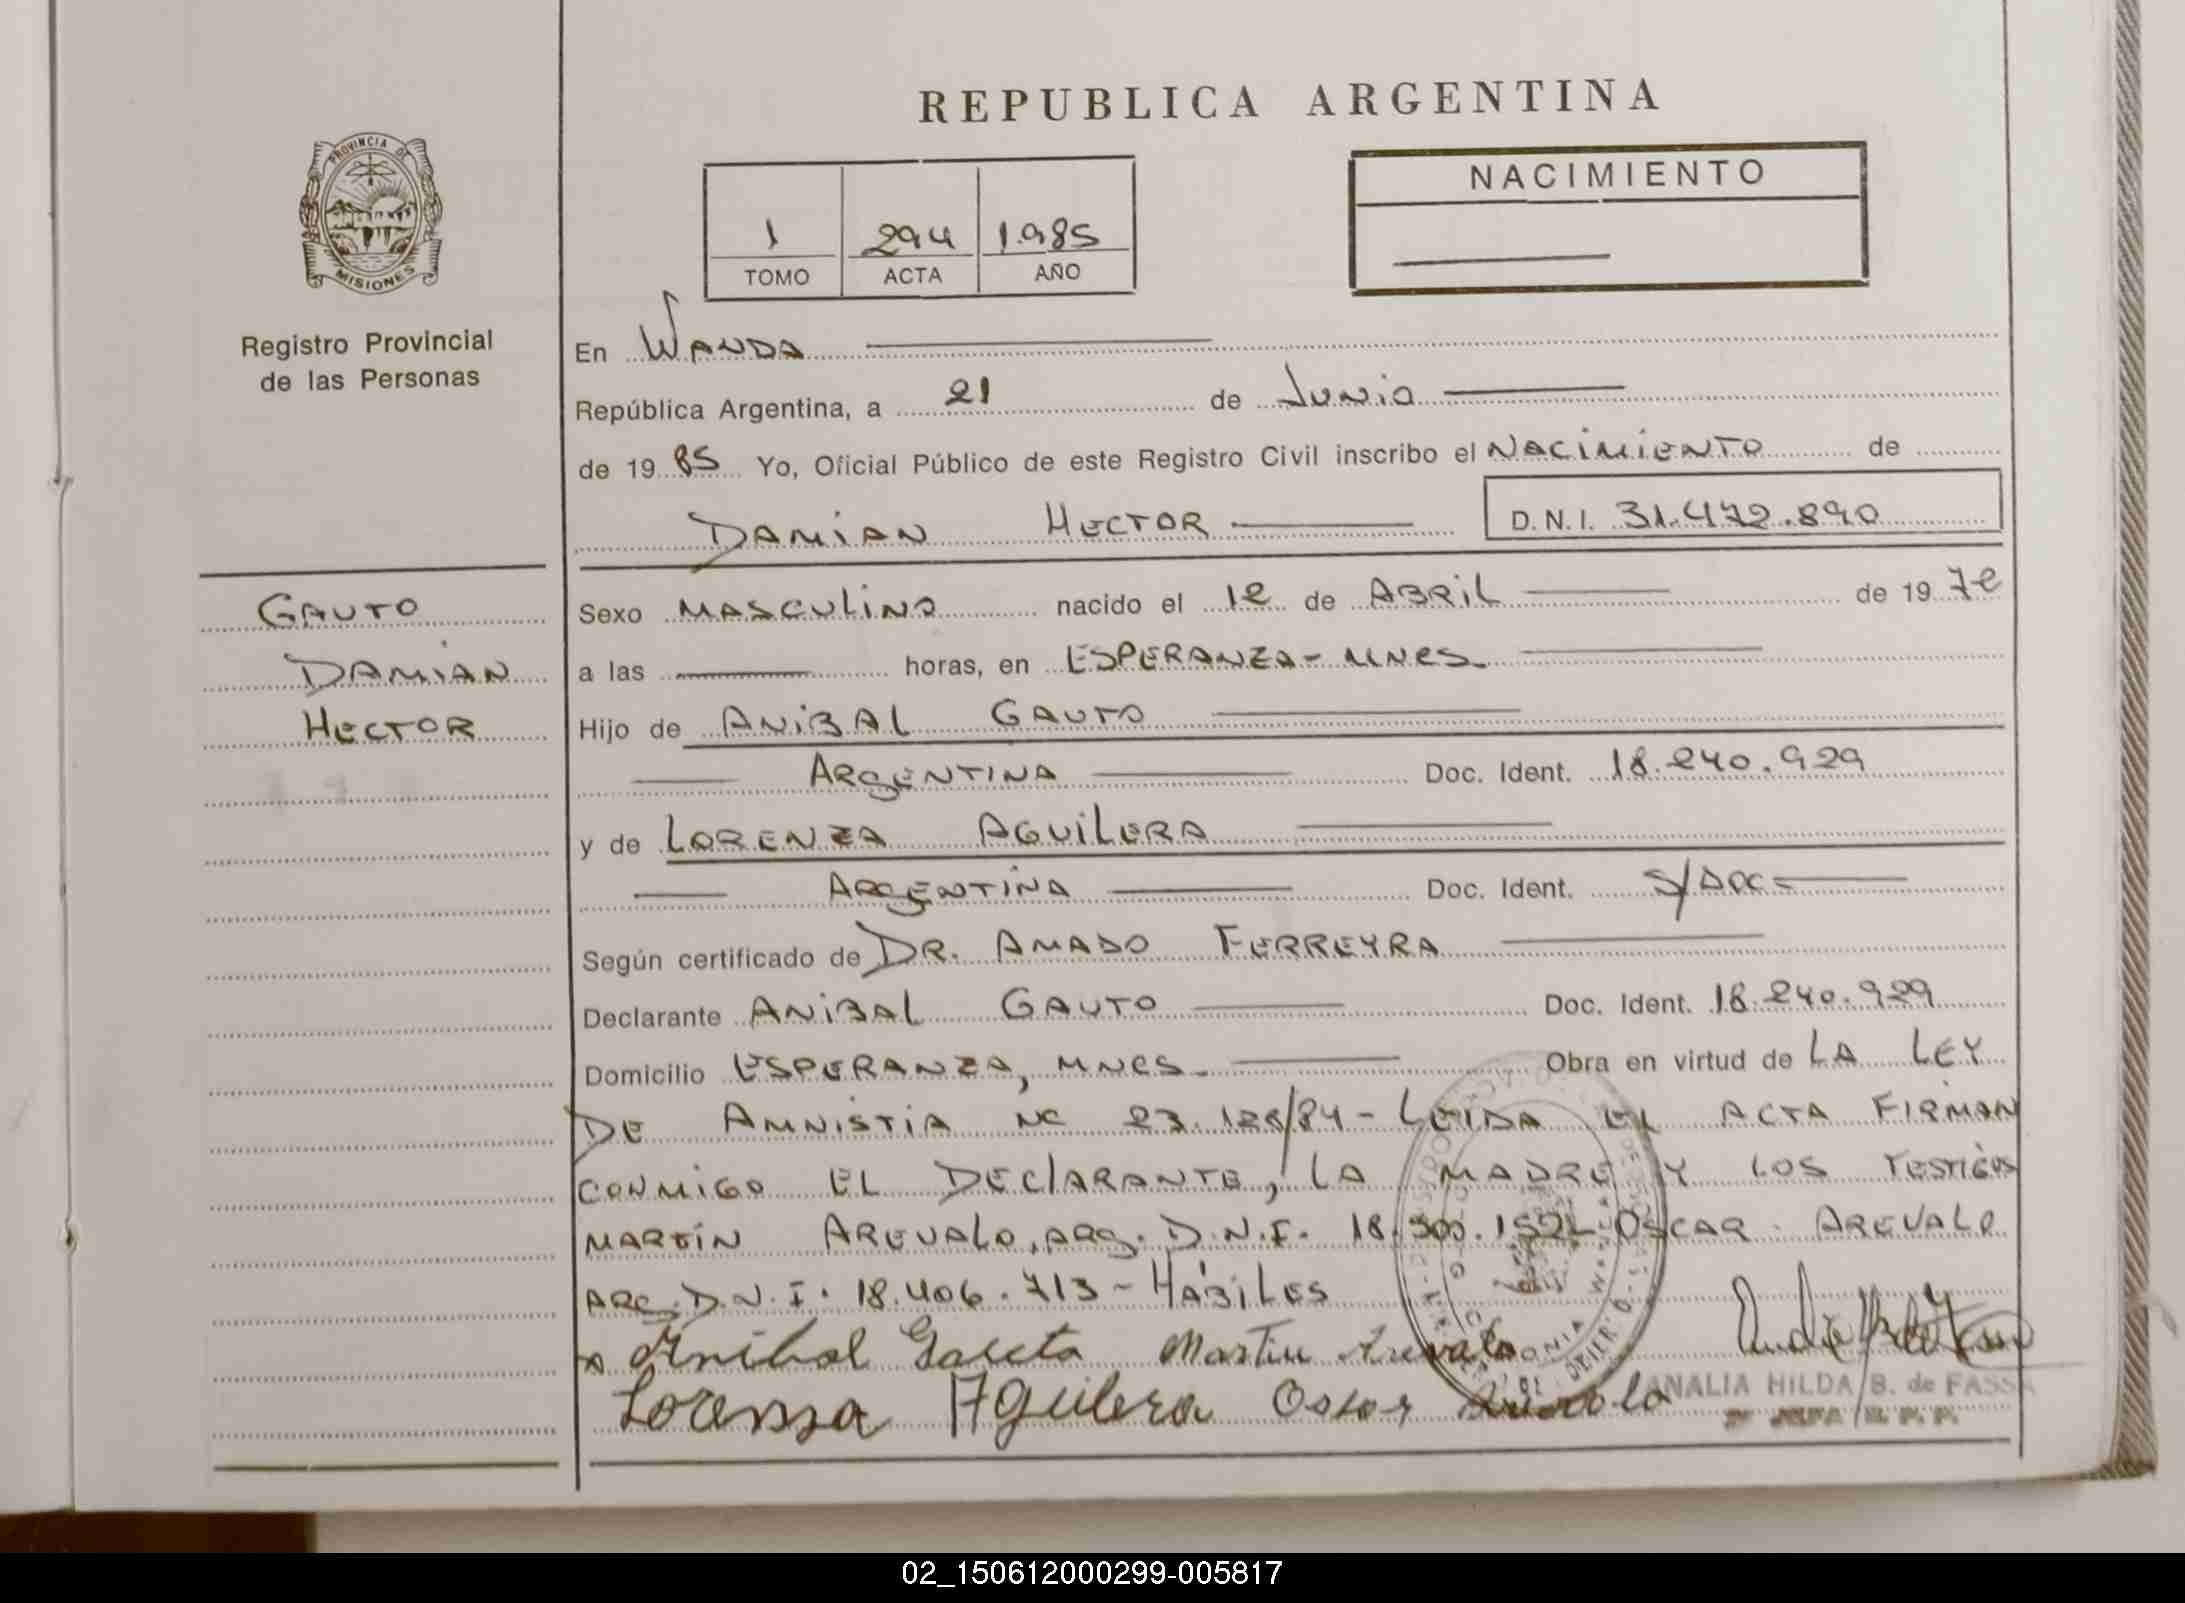 REPUBLICA ARGENTINA
PROVINCIA DE
MISIONES
Registro Provincial
de las Personas
1 294 1.985
TOMO ACTA AÑO
NACIMIENTO
En WANDA
República Argentina, a 21 de Junio
de 19 85 Yo, Oficial Público de este Registro Civil inscribo el NACIMIENTO de
DAMIAN HECTOR D.N.I. 31.472.890
GAUTO
DAMIAN
HECTOR
Sexo MASCULINO nacido el 12 de ABRIL de 19 72
a las horas, en ESPERANZA - MNES.
Hijo de ANIBAL GAUTO
ARGENTINA Doc. Ident. 18.240.929
y de LORENZA AGUILERA
ARGENTINA Doc. Ident. S/DOC
Según certificado de DR. AMADO FERREYRA
Declarante ANIBAL GAUTO Doc. Ident. 18.240.929
Domicilio ESPERANZA, MNES. Obra en virtud de LA LEY
DE AMNISTIA Nº 23.128/84 - LEIDA EL ACTA FIRMAN
CONMIGO EL DECLARANTE, LA MADRE Y LOS TESTIGOS
MARTÍN AREVALO, ARG. D.N.I. 18. OSCAR AREVALO
ARG. D.N.I. 18.406.713 - HÁBILES
Anibal Gauto Martin Arevalo
Lorensa Aguilera Oscar
ANALIA HILDA B. de FASSA
02_150612000299-005817